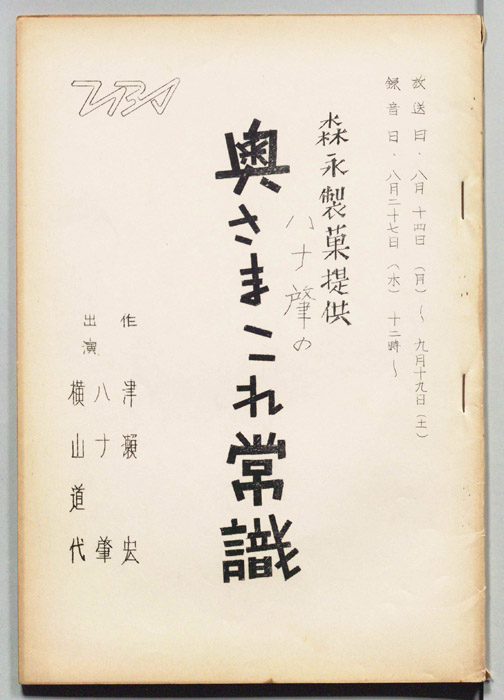 放送日・八月十四日(月)〜九月十九日(土)
録音日・八月二十七日(水)十二時〜
森永製菓提供
ハナ肇の
奥さまこれ常識
作 津瀬宏
出演 ハナ肇
横山道代